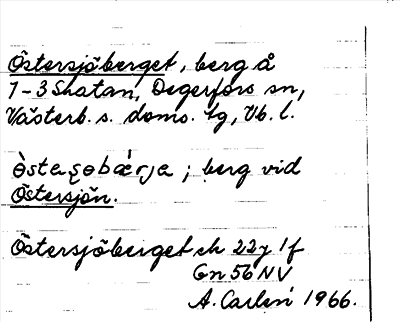 Östersjöberget, berg å
1-3 Skatan, Degerfors sn,
Västerb. s. doms. tg, Vb. l.
östaşobærja ; berg vid
Östersjön.
Östersjöberget ek 22j 1f
Gn 56 NV
A. Carlén 1966.